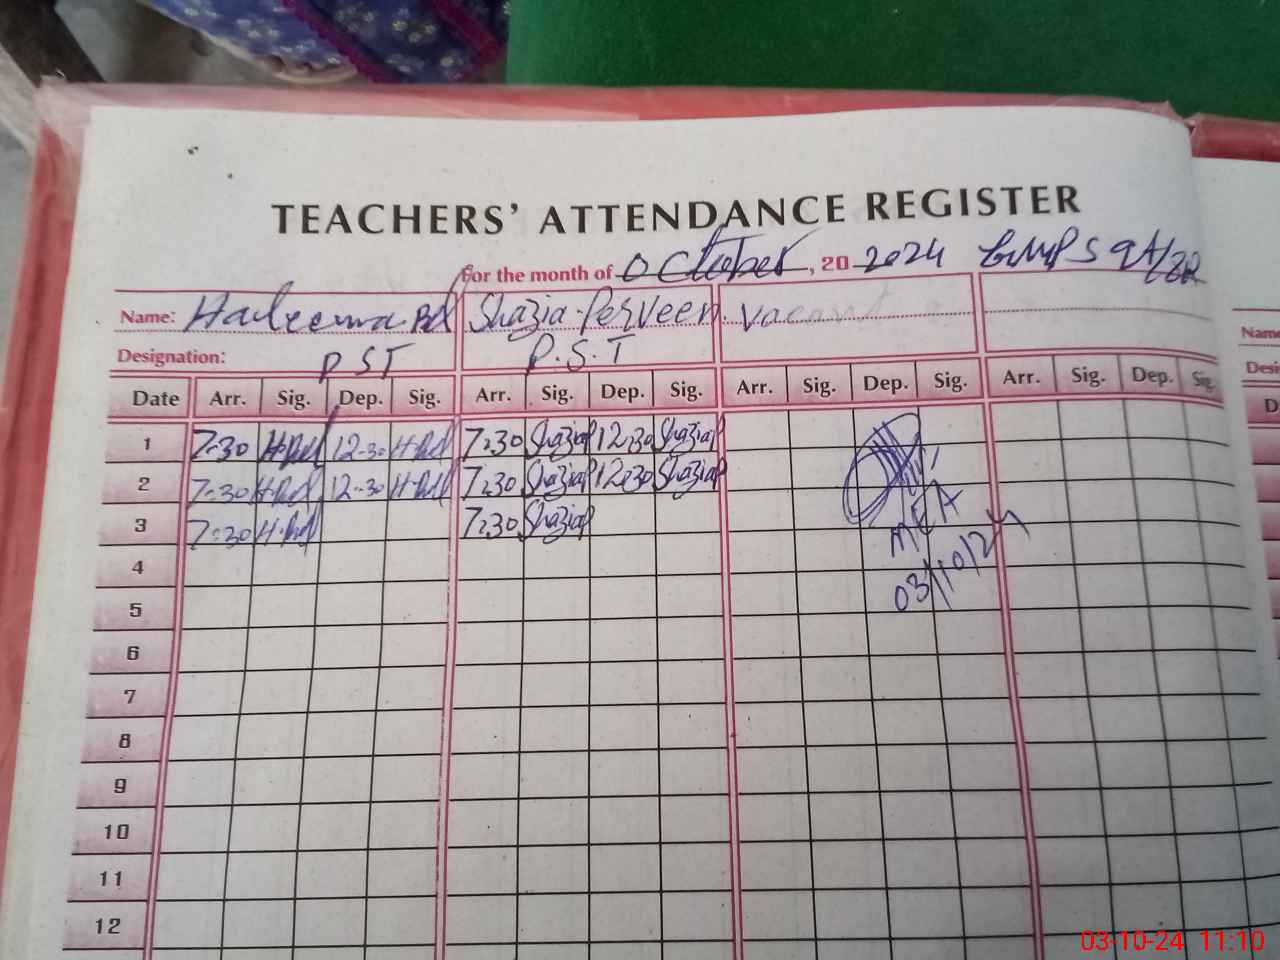 TEACHERS' ATTENDANCE REGISTER
For the month of October, 20 2024 GMPS 9A/
Name: Haleema Bd Shazia Perveen Vacant Name
Designation: PST P.S.T Desi
Date Arr. Sig. Dep. Sig. Arr. Sig. Dep. Sig. Arr. Sig. Dep. Sig. Arr. Sig. Dep. Sig. D
1 7:30 H.Bd 12:30 H.Bd 7:30 ShaziaP 12:30 ShaziaP
2 7:30 H.Bd 12:30 H.Bd 7:30 ShaziaP 12:30 ShaziaP
3 7:30 H.Bd 7:30 ShaziaP MEA
4
5 03/10/24
6
7
8
9
10
11
12
03-10-24 11:10